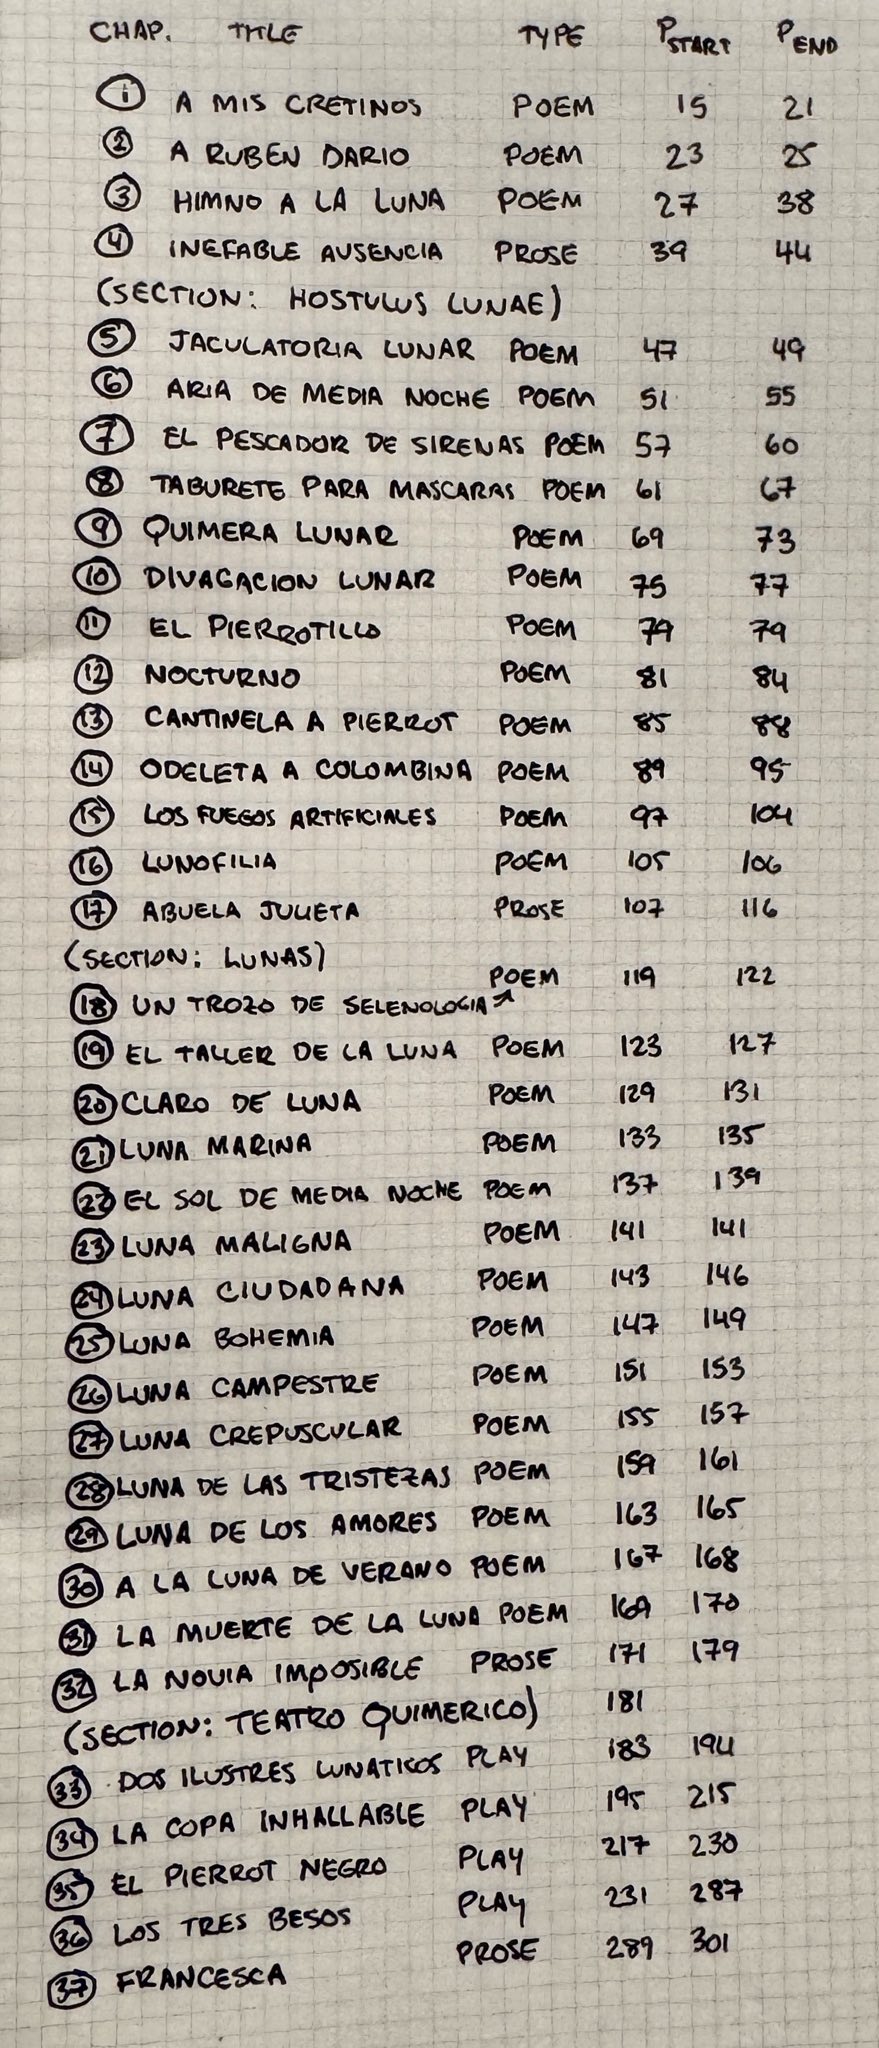 CHAP. TITLE TYPE P START P END
1 A MIS CRETINOS POEM 15 21
2 A RUBEN DARIO POEM 23 25
3 HIMNO A LA LUNA POEM 27 38
4 INEFABLE AUSENCIA PROSE 39 44
(SECTION: HOSTULUS LUNAE)
5 JACULATORIA LUNAR POEM 47 49
6 ARIA DE MEDIA NOCHE POEM 51 55
7 EL PESCADOR DE SIRENAS POEM 57 60
8 TABURETE PARA MASCARAS POEM 61 67
9 QUIMERA LUNAR POEM 69 73
10 DIVAGACION LUNAR POEM 75 77
11 EL PIERROTILLO POEM 79 79
12 NOCTURNO POEM 81 84
13 CANTINELA A PIERROT POEM 85 88
14 ODELETA A COLOMBINA POEM 89 95
15 LOS FUEGOS ARTIFICIALES POEM 97 104
16 LUNOFILIA POEM 105 106
17 ABUELA JULIETA PROSE 107 116
(SECTION: LUNAS)
18 UN TROZO DE SELENOLOGIA POEM 119 122
19 EL TALLER DE LA LUNA POEM 123 127
20 CLARO DE LUNA POEM 129 131
21 LUNA MARINA POEM 133 135
22 EL SOL DE MEDIA NOCHE POEM 137 139
23 LUNA MALIGNA POEM 141 141
24 LUNA CIUDADANA POEM 143 146
25 LUNA BOHEMIA POEM 147 149
26 LUNA CAMPESTRE POEM 151 153
27 LUNA CREPUSCULAR POEM 155 157
28 LUNA DE LAS TRISTEZAS POEM 159 161
29 LUNA DE LOS AMORES POEM 163 165
30 A LA LUNA DE VERANO POEM 167 168
31 LA MUERTE DE LA LUNA POEM 169 170
32 LA NOVIA IMPOSIBLE PROSE 171 179
(SECTION: TEATRO QUIMERICO) 181
33 DOS ILUSTRES LUNATICOS PLAY 183 194
34 LA COPA INHALLABLE PLAY 195 215
35 EL PIERROT NEGRO PLAY 217 230
36 LOS TRES BESOS PLAY 231 287
37 FRANCESCA PROSE 289 301